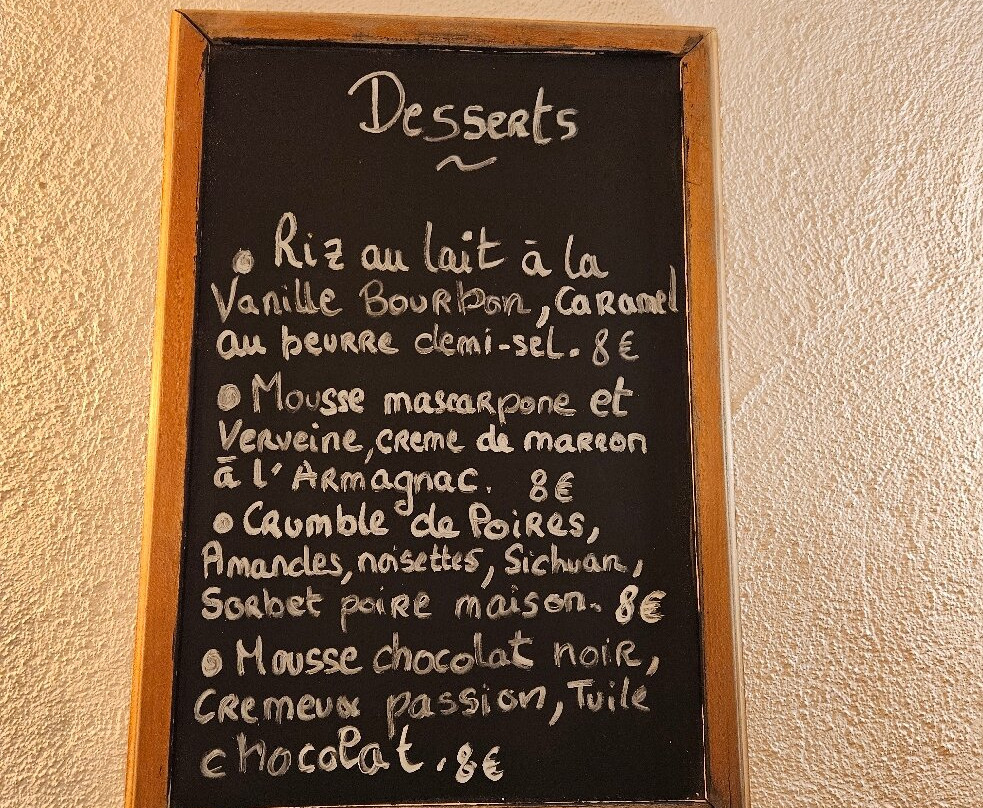 Desserts
~
• Riz au lait à la
Vanille Bourbon, Caramel
au beurre demi-sel. 8€
• Mousse mascarpone et
Verveine, creme de marron
à l'Armagnac. 8€
• Crumble de Poires,
Amandes, noisettes, Sichuan,
Sorbet poire maison. 8€
• Mousse chocolat noir,
Cremeux passion, Tuile
chocolat. 8€